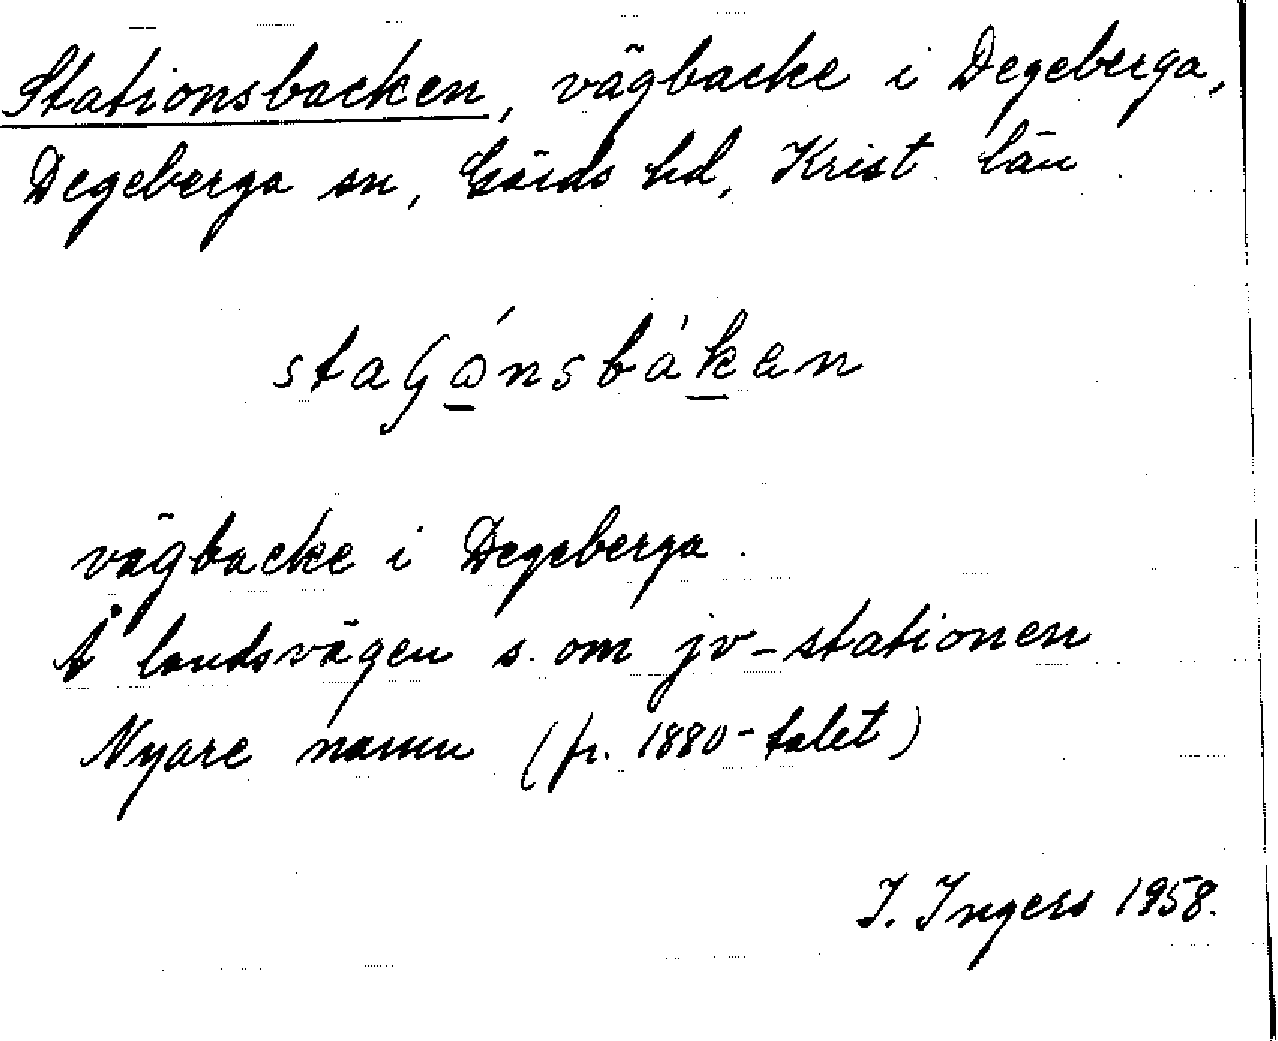 Stationsbacken, vägbacke i Degeberga,
Degeberga sn, Gärds hd, Krist. län.
vägbacke i Degeberga.
Å landsvägen s. om jv-stationen
Nyare namn (fr. 1880-talet)
I. Ingers 1958.